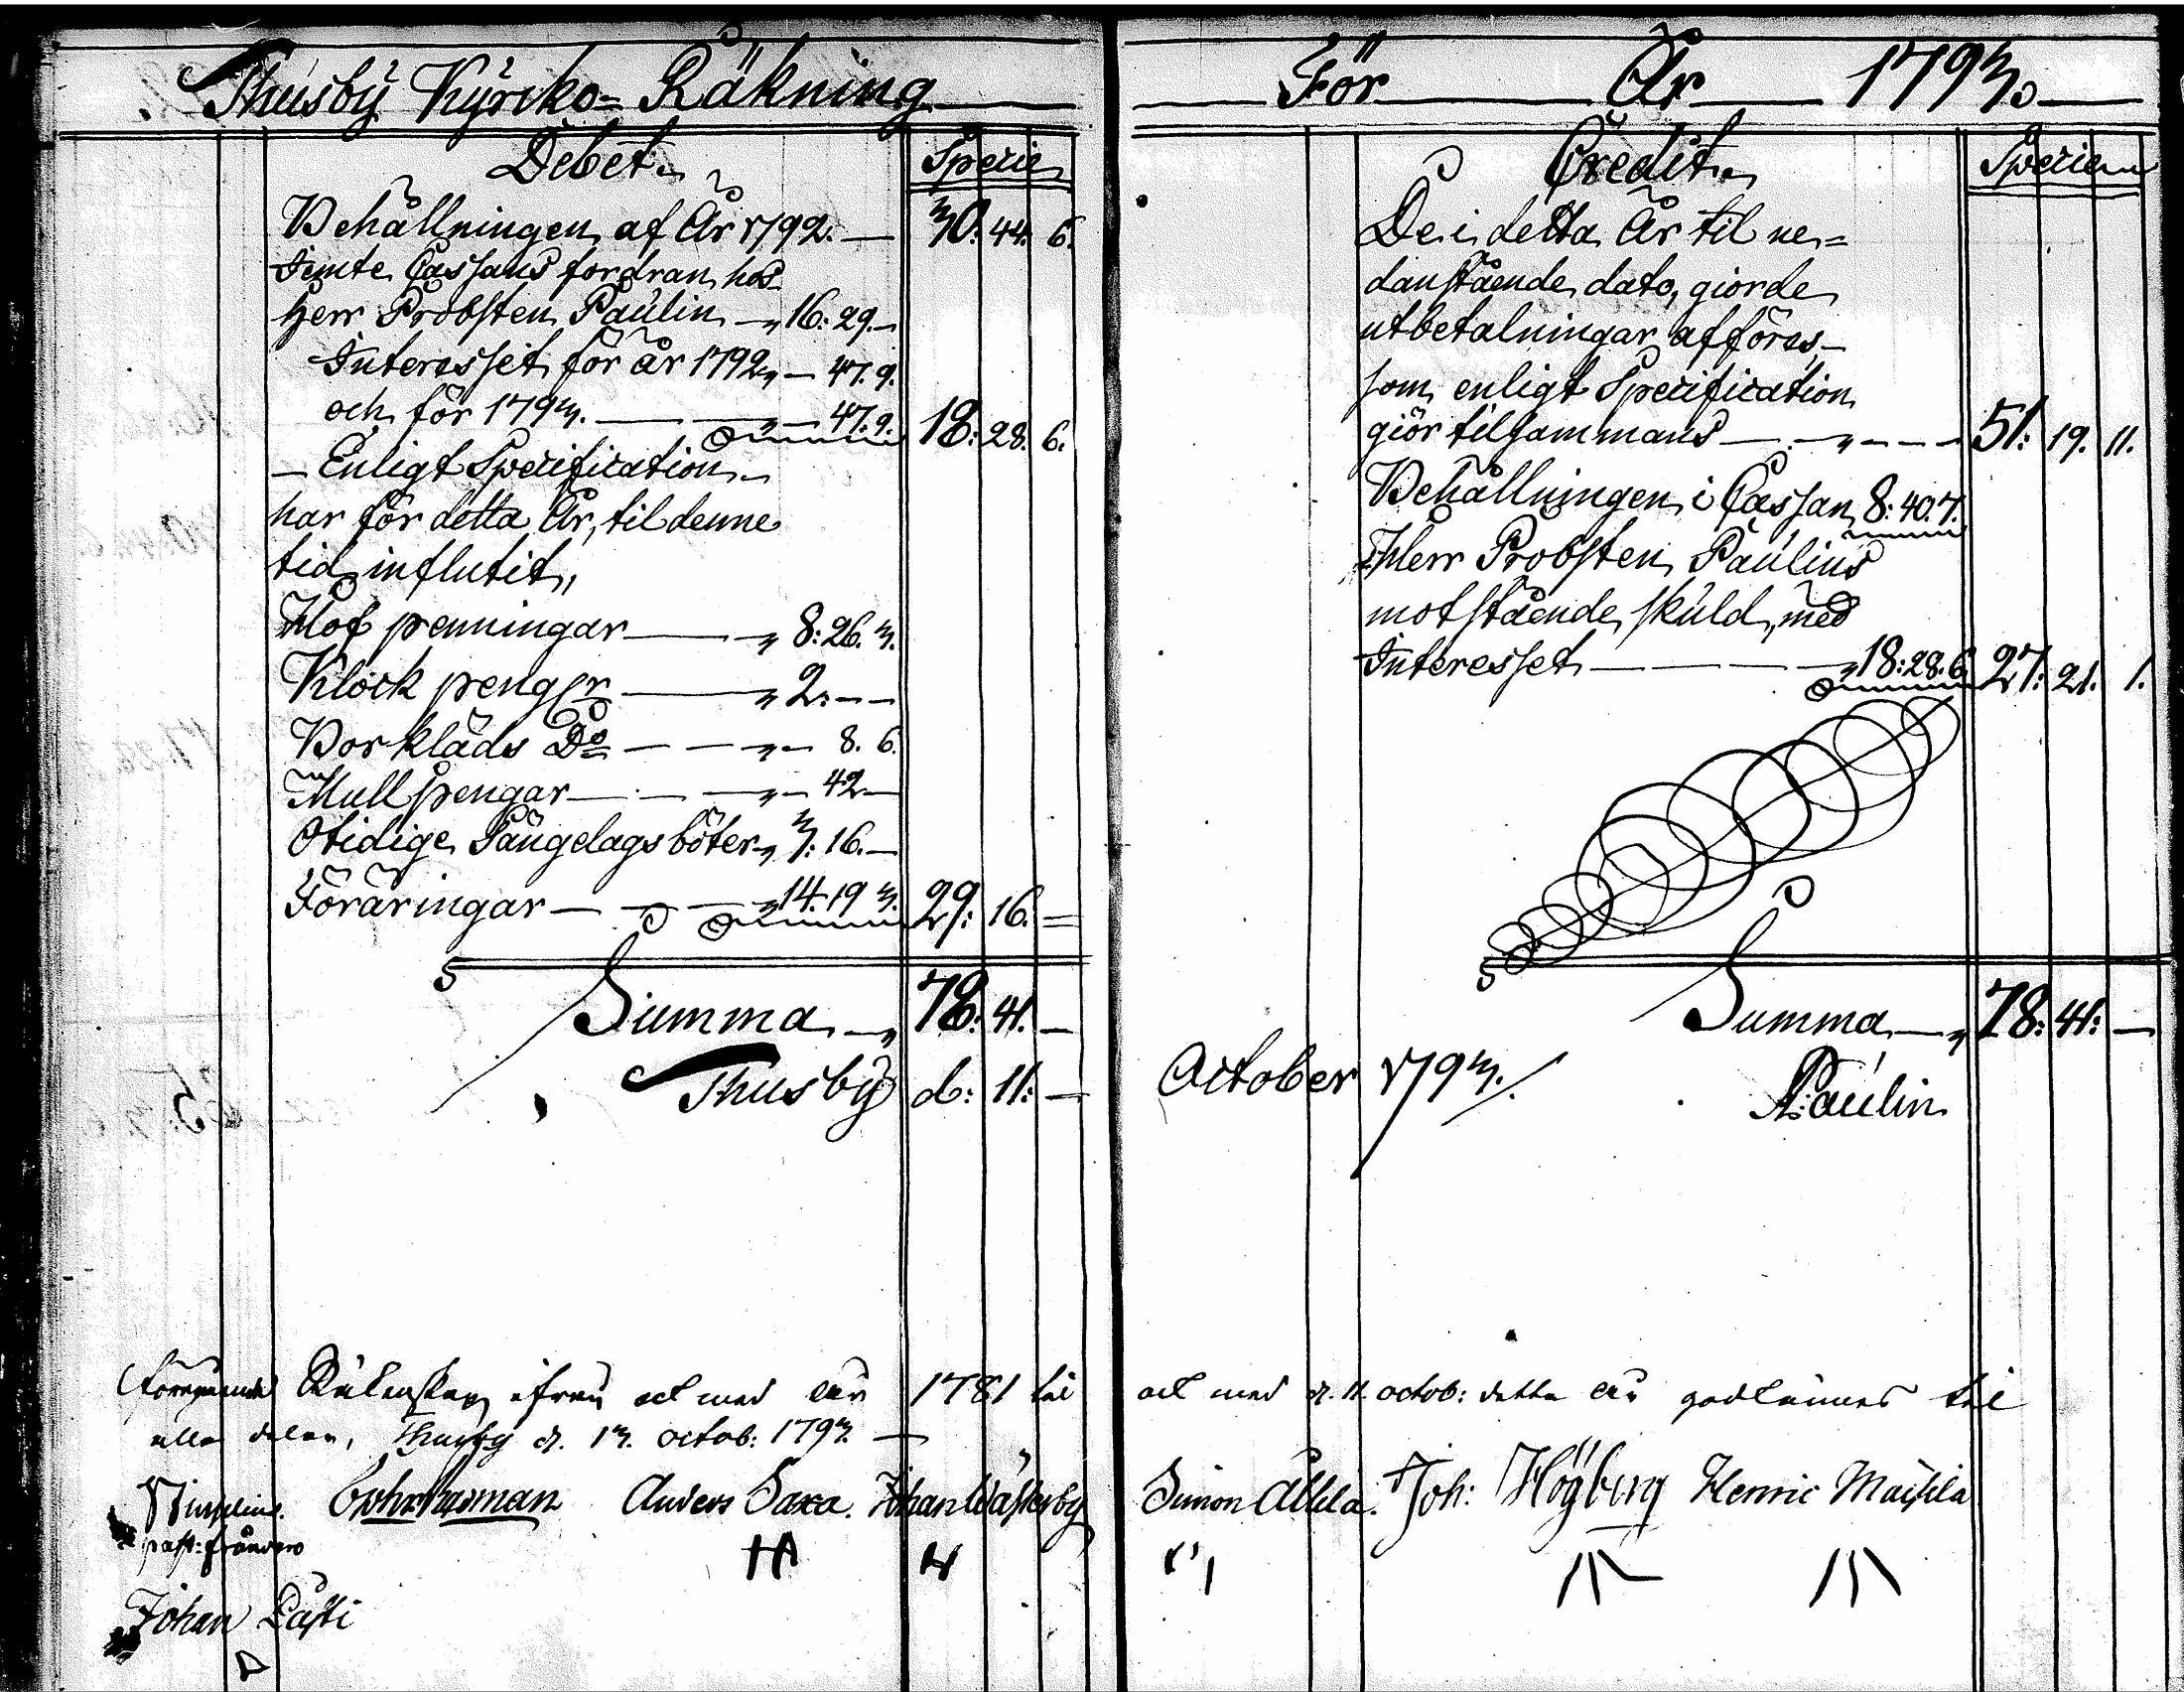 Thusby Kyrcko=Räkning
Debet. Specie
Behållningen af År 1792. — 30: 44. 6.
Jemte Cassans fordran hos
Herr Probsten Paulin — 16: 29. —
Interesset för år 1792 — 47. 9.
och för 1793. — 47. 9. 18: 28. 6.
Enligt Specification
har för detta År, til denne
tid influtit,
Håf penningar — 8: 26. 3.
Klock peng:r — 2. — —
Borkläds D:o — 8. 6.
Mull pengar — 42 —
Otidige Sängelagsböter 3: 16. —
Föräringar — 14. 19 3. 29: 16. =
Summa — 78: 41. —
Thusby d: 11: —
För År 1793
Credit. Specie
De i detta År til ne=
danstående dato, giorde
utbetalningar afföres
som enligt Specification
giör tilsammans — 51: 19. 11.
Behållningen i Cassan 8: 40. 7.
Herr Probsten Paulins
motstående skuld, med
Interesset — 18: 28. 6 27: 21. 1.
Summa — 78: 41: —
October 1793. Paulin
Räkenskap ifrån och med år 1781 til och med d. 11. octob: detta år godkännes til
alla delar, Thusby d. 13. octob: 1793. —
Anders Saxa. Johan Wästerby Simon Joh: Högberg Henric
Johan